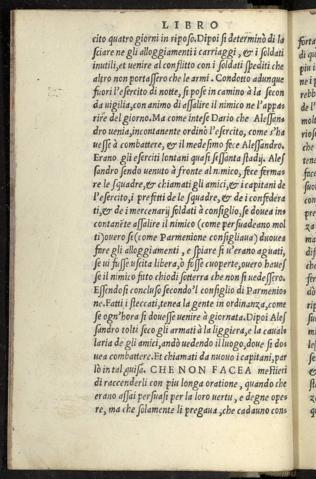 LIBRO
cito quatro giorni in riposo. Dipoi si determinò di la
sciare ne gli alloggiamenti i carriaggi, & i soldati
inutili, et uenire al conflitto con i soldati spediti che
altro non portassero che le armi. Condotto adunque
fuori l'esercito di notte, si pose in camino à la secon
da uigilia, con animo di assalire il nimico ne l'appa-
rire del giorno. Ma come intese Dario che Alessan-
dro uenia, incontanente ordinò l'esercito, come s'ha
uesse à combattere, & il medesimo fece Alessandro.
Erano gli eserciti lontani quasi sessanta stadij. Ales
sandro sendo uenuto à fronte al nimico, fece ferma-
re le squadre, & chiamati gli amici, & i capitani de
l'esercito, i prefetti de le squadre, & de i confedera
ti, & de i mercenarij soldati à consiglio, se douea in-
contanēte assalire il nimico (come persuadeano mol
ti) ouero se (come Parmenione consigliaua) douea
fare gli alloggiamenti, e spiare si u'erano aguati,
se ui fusse uscita libera, ò fosse coperte, ouero hauesse
se il nimico fitto chiodi sotterra che non si uedessero.
Essendosi concluso secondo 'l consiglio di Parmenio-
ne. Fatti i steccati, tenea la gente in ordinanza, come
se ogn'hora si douesse uenire à giornata. Dipoi Ales
sandro tolti seco gli armati à la liggiera, e la caual-
laria de gli amici, andò uedendo il luogo, doue si do-
uea combattere. Et chiamati da nuouo i capitani, par
lò in tal guisa. CHE NON FACEA mestieri
di raccenderli con piu longa oratione, quando che
erano assai persuasi per la loro uertu, e degne ope-
re, ma che solamente li pregaua, che cadauno con-